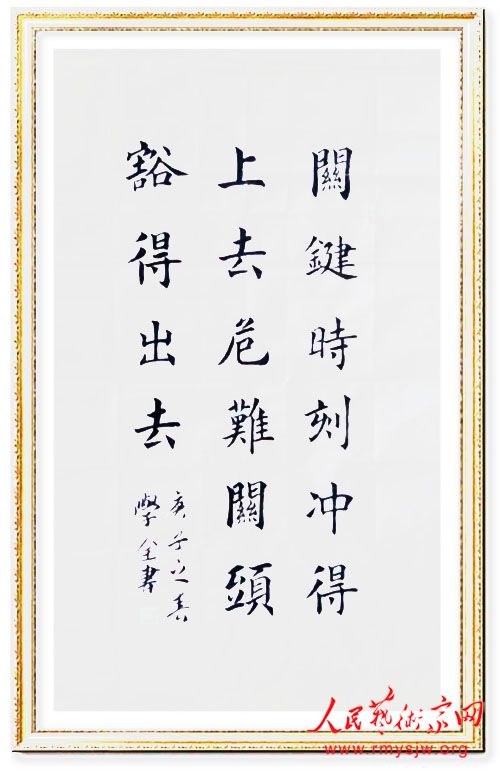 關鍵時刻冲得
上去危難關頭
豁得出去
庚子之春
學全書
人民藝術家网
www.rmysjw.org